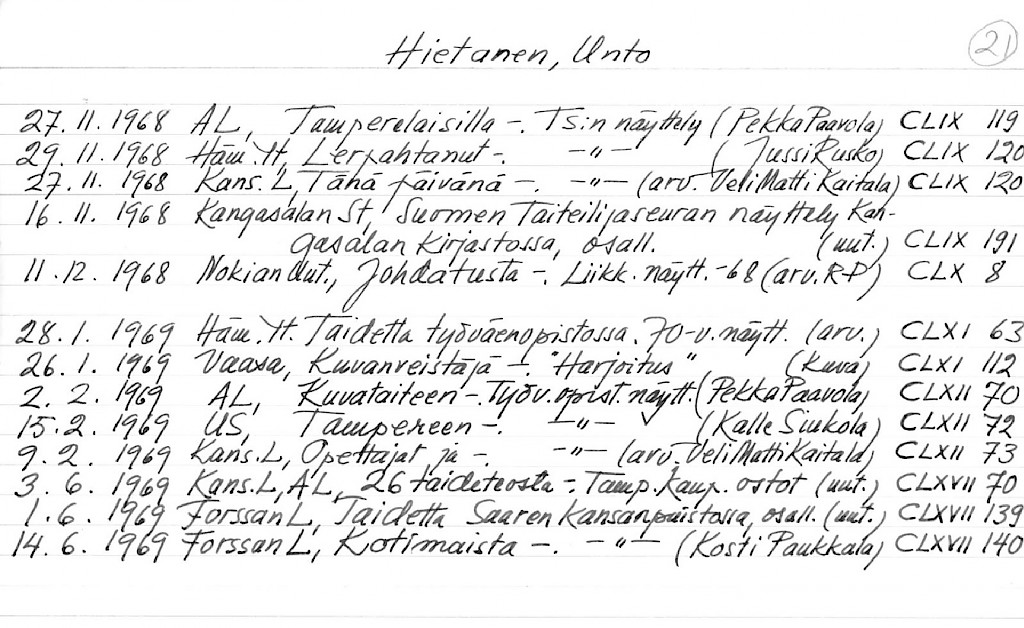 21
Hietanen, Unto
27.11.1968 AL, Tamperelaisilla -. TS:n näyttely (Pekka Paavola) CLIX 119
29.11.1968 Häm.Yt, Lerpahtanut -. -"- (Jussi Rusko) CLIX 120
27.11.1968 Kans.L, Tähä päivänä -. -"- (arv. Veli Matti Kaitala) CLIX 120
16.11.1968 Kangasalan St, Suomen Taiteilijaseuran näyttely Kan-
gasalan kirjastossa, osall. (uut.) CLIX 191
11.12.1968 Nokian Uut., Johdatusta -. Liikk. näytt. -68 (arv. R-P) CLX 8
28.1.1969 Häm.Yt. Taidetta työväenopistossa. 70-v. näytt. (arv.) CLXI 63
26.1.1969 Vaasa, Kuvanveistäjä -. "Harjoitus" (kuva) CLXI 112
2.2.1969 AL, Kuvataiteen -. Työv.opist. näytt. (Pekka Paavola) CLXII 70
15.2.1969 US, Tampereen -. -"- (Kalle Siukola) CLXII 72
9.2.1969 Kans.L, Opettajat ja -. -"- (arv. Veli Matti Kaitala) CLXII 73
3.6.1969 Kans.L, AL, 26 taideteosta -. Tamp. kaup. ostot (uut.) CLXVII 70
1.6.1969 Forssan L, Taidetta Saaren kansanpuistossa, osall. (uut.) CLXVII 139
14.6.1969 Forssan L, Kotimaista -. -"- (Kosti Paukkala) CLXVII 140